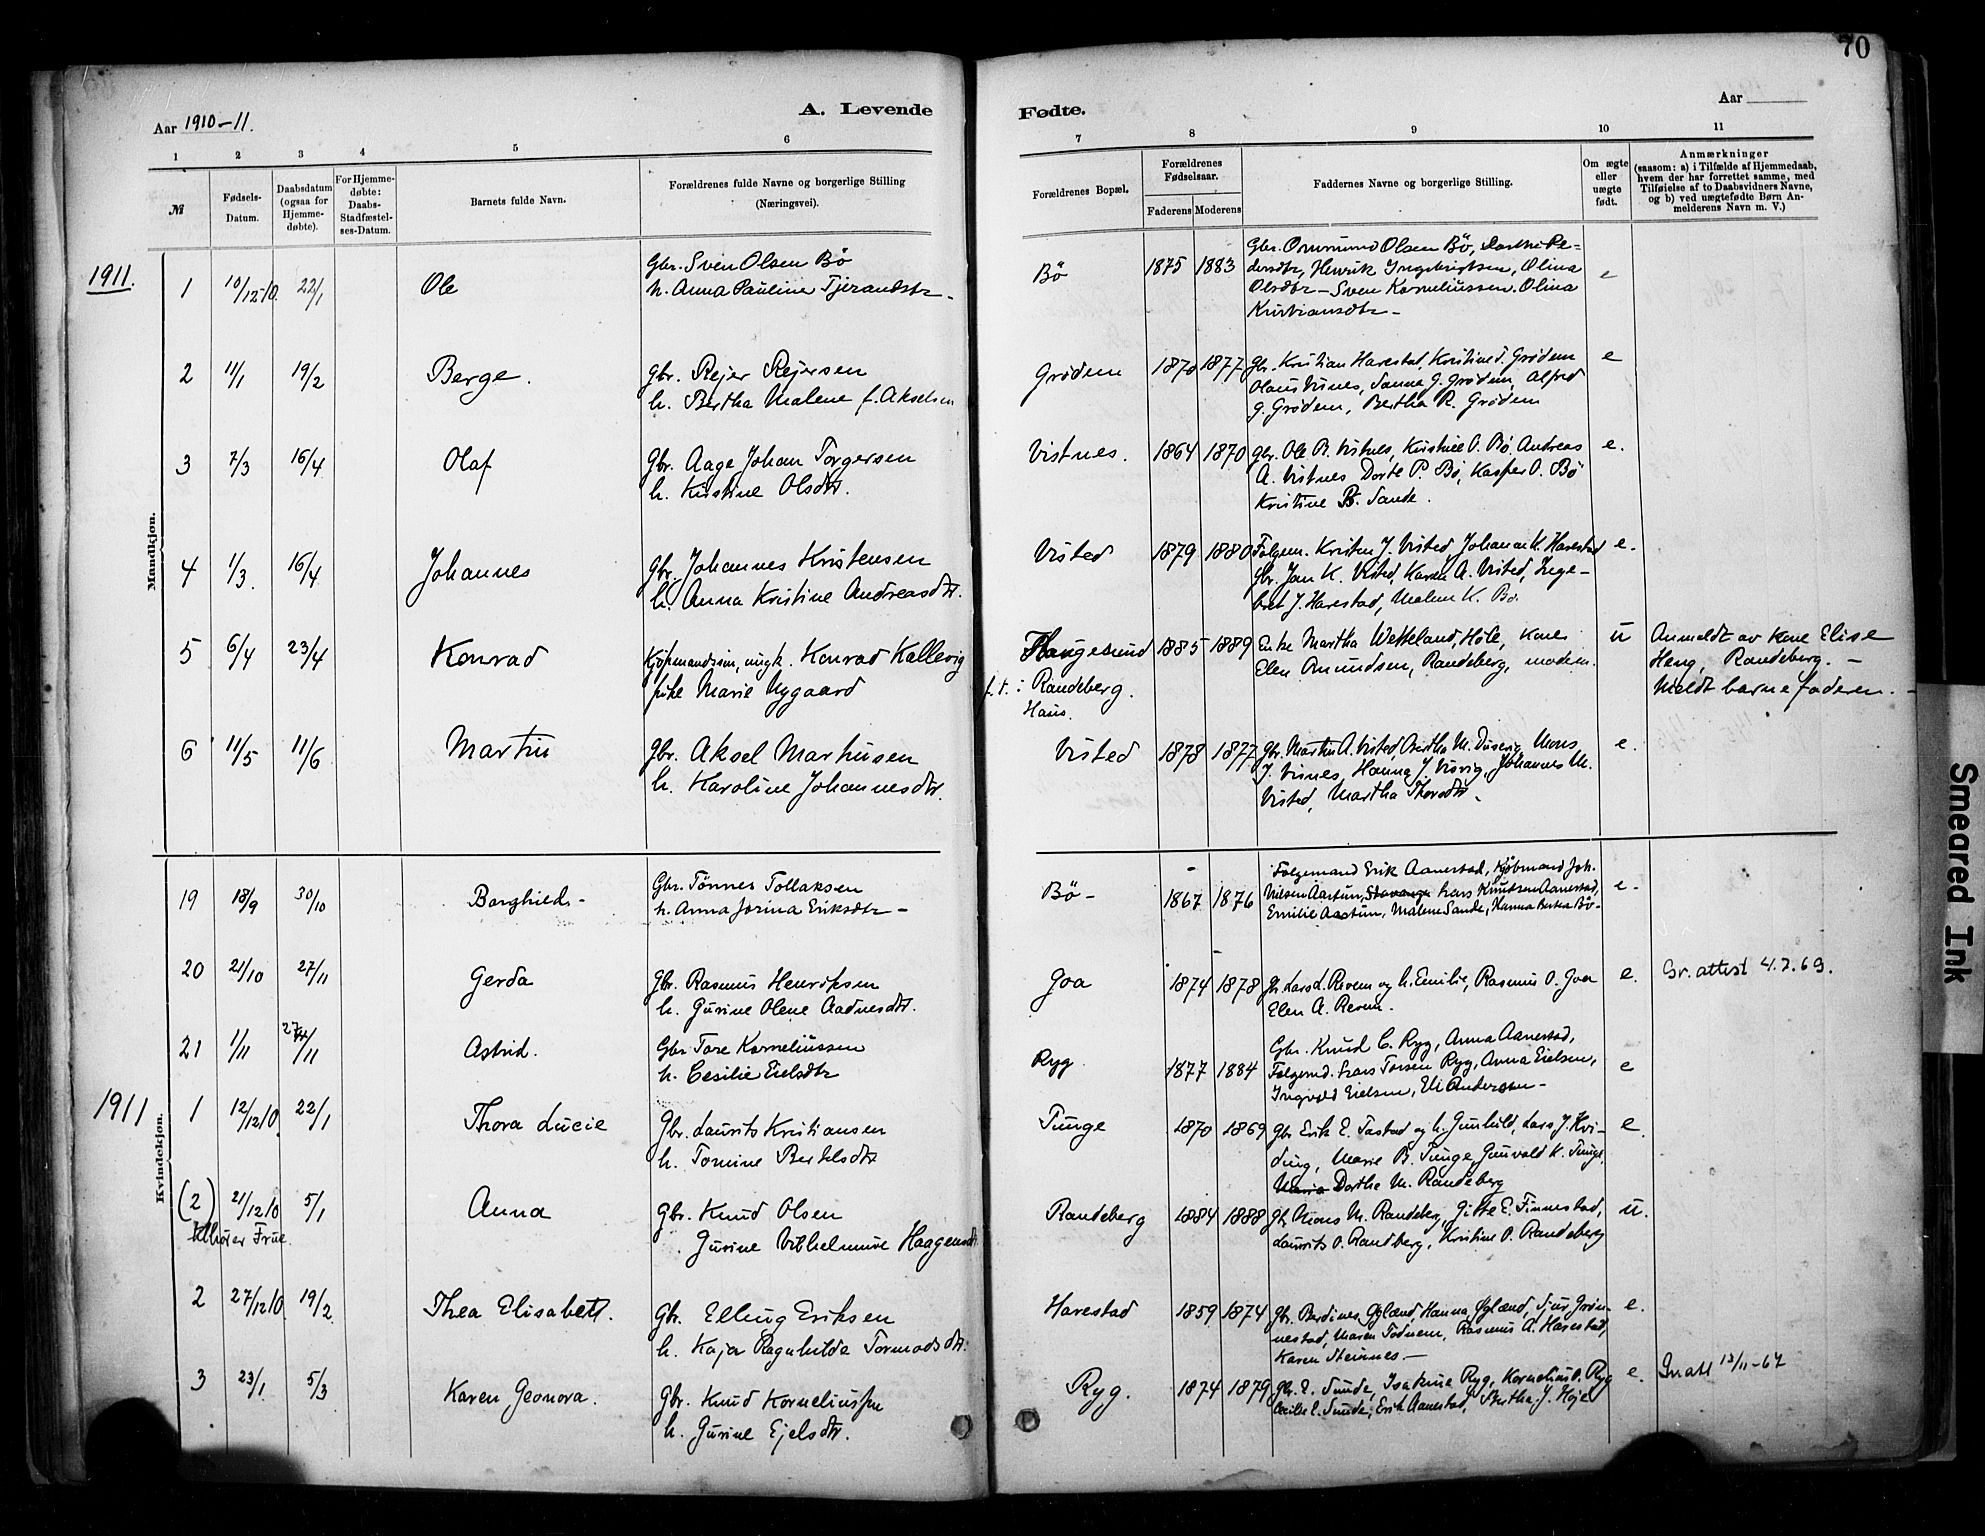 70
Aar 1910-11.
A. Levende
Fødte.
Aar
1 2 3 4 5 6 7 8 9 10 11
№
Fødsels-Datum.
Daabsdatum (ogsaa for Hjemme-døbte).
For Hjemme-døbte: Daabs-Stadfæstel-ses-Datum.
Barnets fulde Navn.
Forældrenes fulde Navne og borgerlige Stilling (Næringsvei).
Forældrenes Bopæl.
Forældrenes Fødselsaar.
Faderens Moderens
Faddernes Navne og borgerlige Stilling.
Om ægte eller uægte født.
Anmærkninger
(saasom: a) i Tilfælde af Hjemmedaab,
hvem der har forrettet samme, med
Tilføielse af to Daabsvidners Navne,
og b) ved uægtefødte Børn An-
melderens Navn m. V.)
Mandkjøn.
1911.
1 10/12-10. 22/1 Ole
Gbr. Sven Olsen Bø
h. Anna Pauline Tjerandsdtr -
Bø 1875 1883
Gbr. Ommund Olsen Bø, Dorthe Pe-
dersdtr, Henrik Ingebrigtsen, Olina
Olsdtr - Sven Korneliussen. Olina
Kristiansdtr -
e
2 11/1 19/2 Berge.
Gbr. Rejer Rejersen
h. Bertha Malene f. Akselsen
Grødem 1870 1877
Gbr. Kristian Harestad, Kristine J. Grødem
Olaus Visnes, Sanna G. Grødem, Alfred
G. Grødem, Bertha R. Grødem
e
3 7/3 16/4 Olaf
Gbr. Aage Johan Torgersen
h. Kristine Olsdtr.
Vistnes. 1864 1870
Gbr. Ole R. Vistnes, Kristine O. Bø, Andreas
A. Vistnes Dorte P. Bø, Kasper O. Bø
Kristine B. Sande.
e.
4 1/3. 16/4 Johannes
Gbr. Johannes Kristensen
h. Anna Kristine Andreasdtr.
Visted 1879 1880
Folgem. Kristen J. Visted, Johan K. Harestad
Gbr. Jan K. Visted, Karen A. Visted, Inge-
bret J. Harestad, Malene K. Bø.
e.
5 6/4 23/4 Konrad
Kjøpmandssøn, ungk. Konrad Kallevig
pike Marie Nygaard
Haugesund
f. t. i Randeberg.
Haus.
1885 1889
Enke Martha Wetteland, Hole, Kone
Elen Amundsen, Randeberg, moderen.
u
Anmeldt av kone Elise
Heng, Randeberg. -
Meldt barnefaderen. -
6 11/5 11/6 Martin
Gbr. Aksel Martinsen
h. Karoline Johannesdtr.
Visted 1878 1877
Gbr. Martin A. Visted, Bertha M. Dusevig, Mons
J. Visnes, Hanna J. Visvig, Johannes M.
Visted, Martha Thorsdtr.
e.
Kvindekjøn.
19 18/9 30/10 Borghild -
Gbr. Tønnes Tollaksen
h. Anna Jorina Eriksdtr -
Bø - 1867 1876
Folgemand Erik Aanestad, Kjøbmand Joh.
Nilsen Aastum, Stavanger Lars Knudsen Aanestad,
Emilie Aastum, Malene Sande, Hanna Bertea Bø -
e -
20 21/10 27/11 Gerda
Gbr. Rasmus Henriksen
h. Gurine Olene Aadnesdtr.
Goa 1874 1878
Gbr. Lars L. Revem og h. Emilie, Rasmus O. Goa
Elen A. Revem.
e.
Gr. attest 4.7.69.
21 1/11 27/11 Astrid.
Gbr Tore Korneliussen
h. Cesilie Eielsdtr
Ryg 1877 1884
Gbr. Knud C. Ryg, Anna Aanestad,
Folgemd. Lars Torsen Ryg, Anna Eielsen,
Ingvald Eielsen, Eli Andersen -
e
1911
1 12/12 10. 22/1 Thora Lucie
Gbr. Laurits Kristiansen
h. Tomine Bertelsdtr
Tunge 1870 1869
Gbr Erik E. Tastad og h. Gunhild, Lars J. Kvi-
ding, Marie B. Tunge, Gunvald K. Tunge,
Maria Dorthe M. Randeberg
e.
(2) 21/12 10 5/1 Anna
tilhører Frue.
Gbr. Knud Olsen
Gurine Vilhelmine Haagensdtr
Randeberg 1884 1888
Gbr Mons M. Randeberg, Gitte E. Finnestad,
Laurits O. Randberg, Kristine O. Randeberg
u.
2 27/12 10. 19/2. Thea Elisabeth.
Gbr. Elling Eriksen
h. Kaja Ragnhilde Tormodsdtr.
Harestad 1859 1874
Gbr. Berdines Ogland, Hanna Ogland, Sjur Grøn-
nestad, Maren Todnem, Rasmus A. Harestad,
Karen Steinnes -
e.
3 23/1 5/3 Karen Geonora.
Gbr. Knud Korneliussen
h. Gurine Ejelsdtr.
Ryg. 1874 1879
Gbr. E. Sunde, Isakine Ryg, Kornelius O. Ryg
Cecilie C. Sunde, Erik Aanestad, Bertha J. Høje
e.
Gn att 13/11-67
Smeared Ink